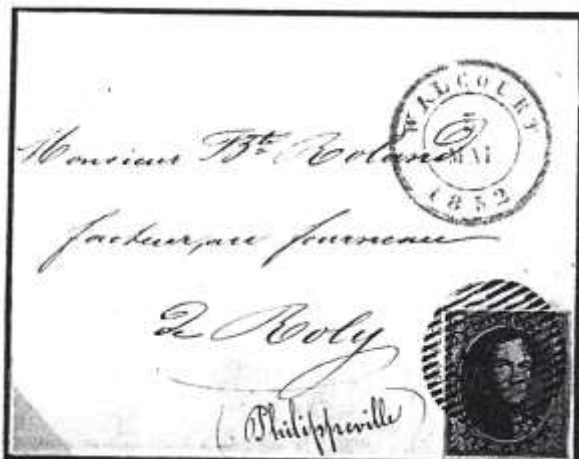 WALCOURT
5
MAI
1852
Monsieur Bte Roland
facteur au fourneau
De Roly
(Philippeville)